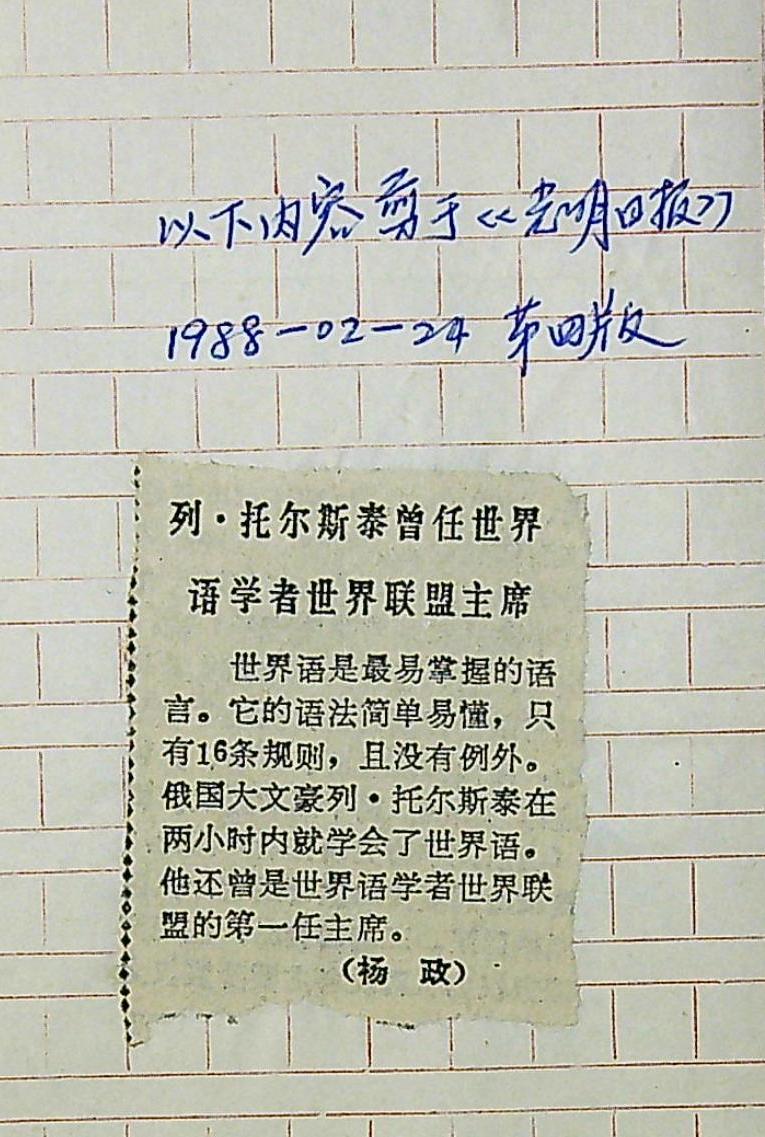 以下内容剪于《光明日报》
1988-02-24 第四版
列·托尔斯泰曾任世界
语学者世界联盟主席
世界语是最易掌握的语
言。它的语法简单易懂，只
有16条规则，且没有例外。
俄国大文豪列·托尔斯泰在
两小时内就学会了世界语。
他还曾是世界语学者世界联
盟的第一任主席。
（杨　政）